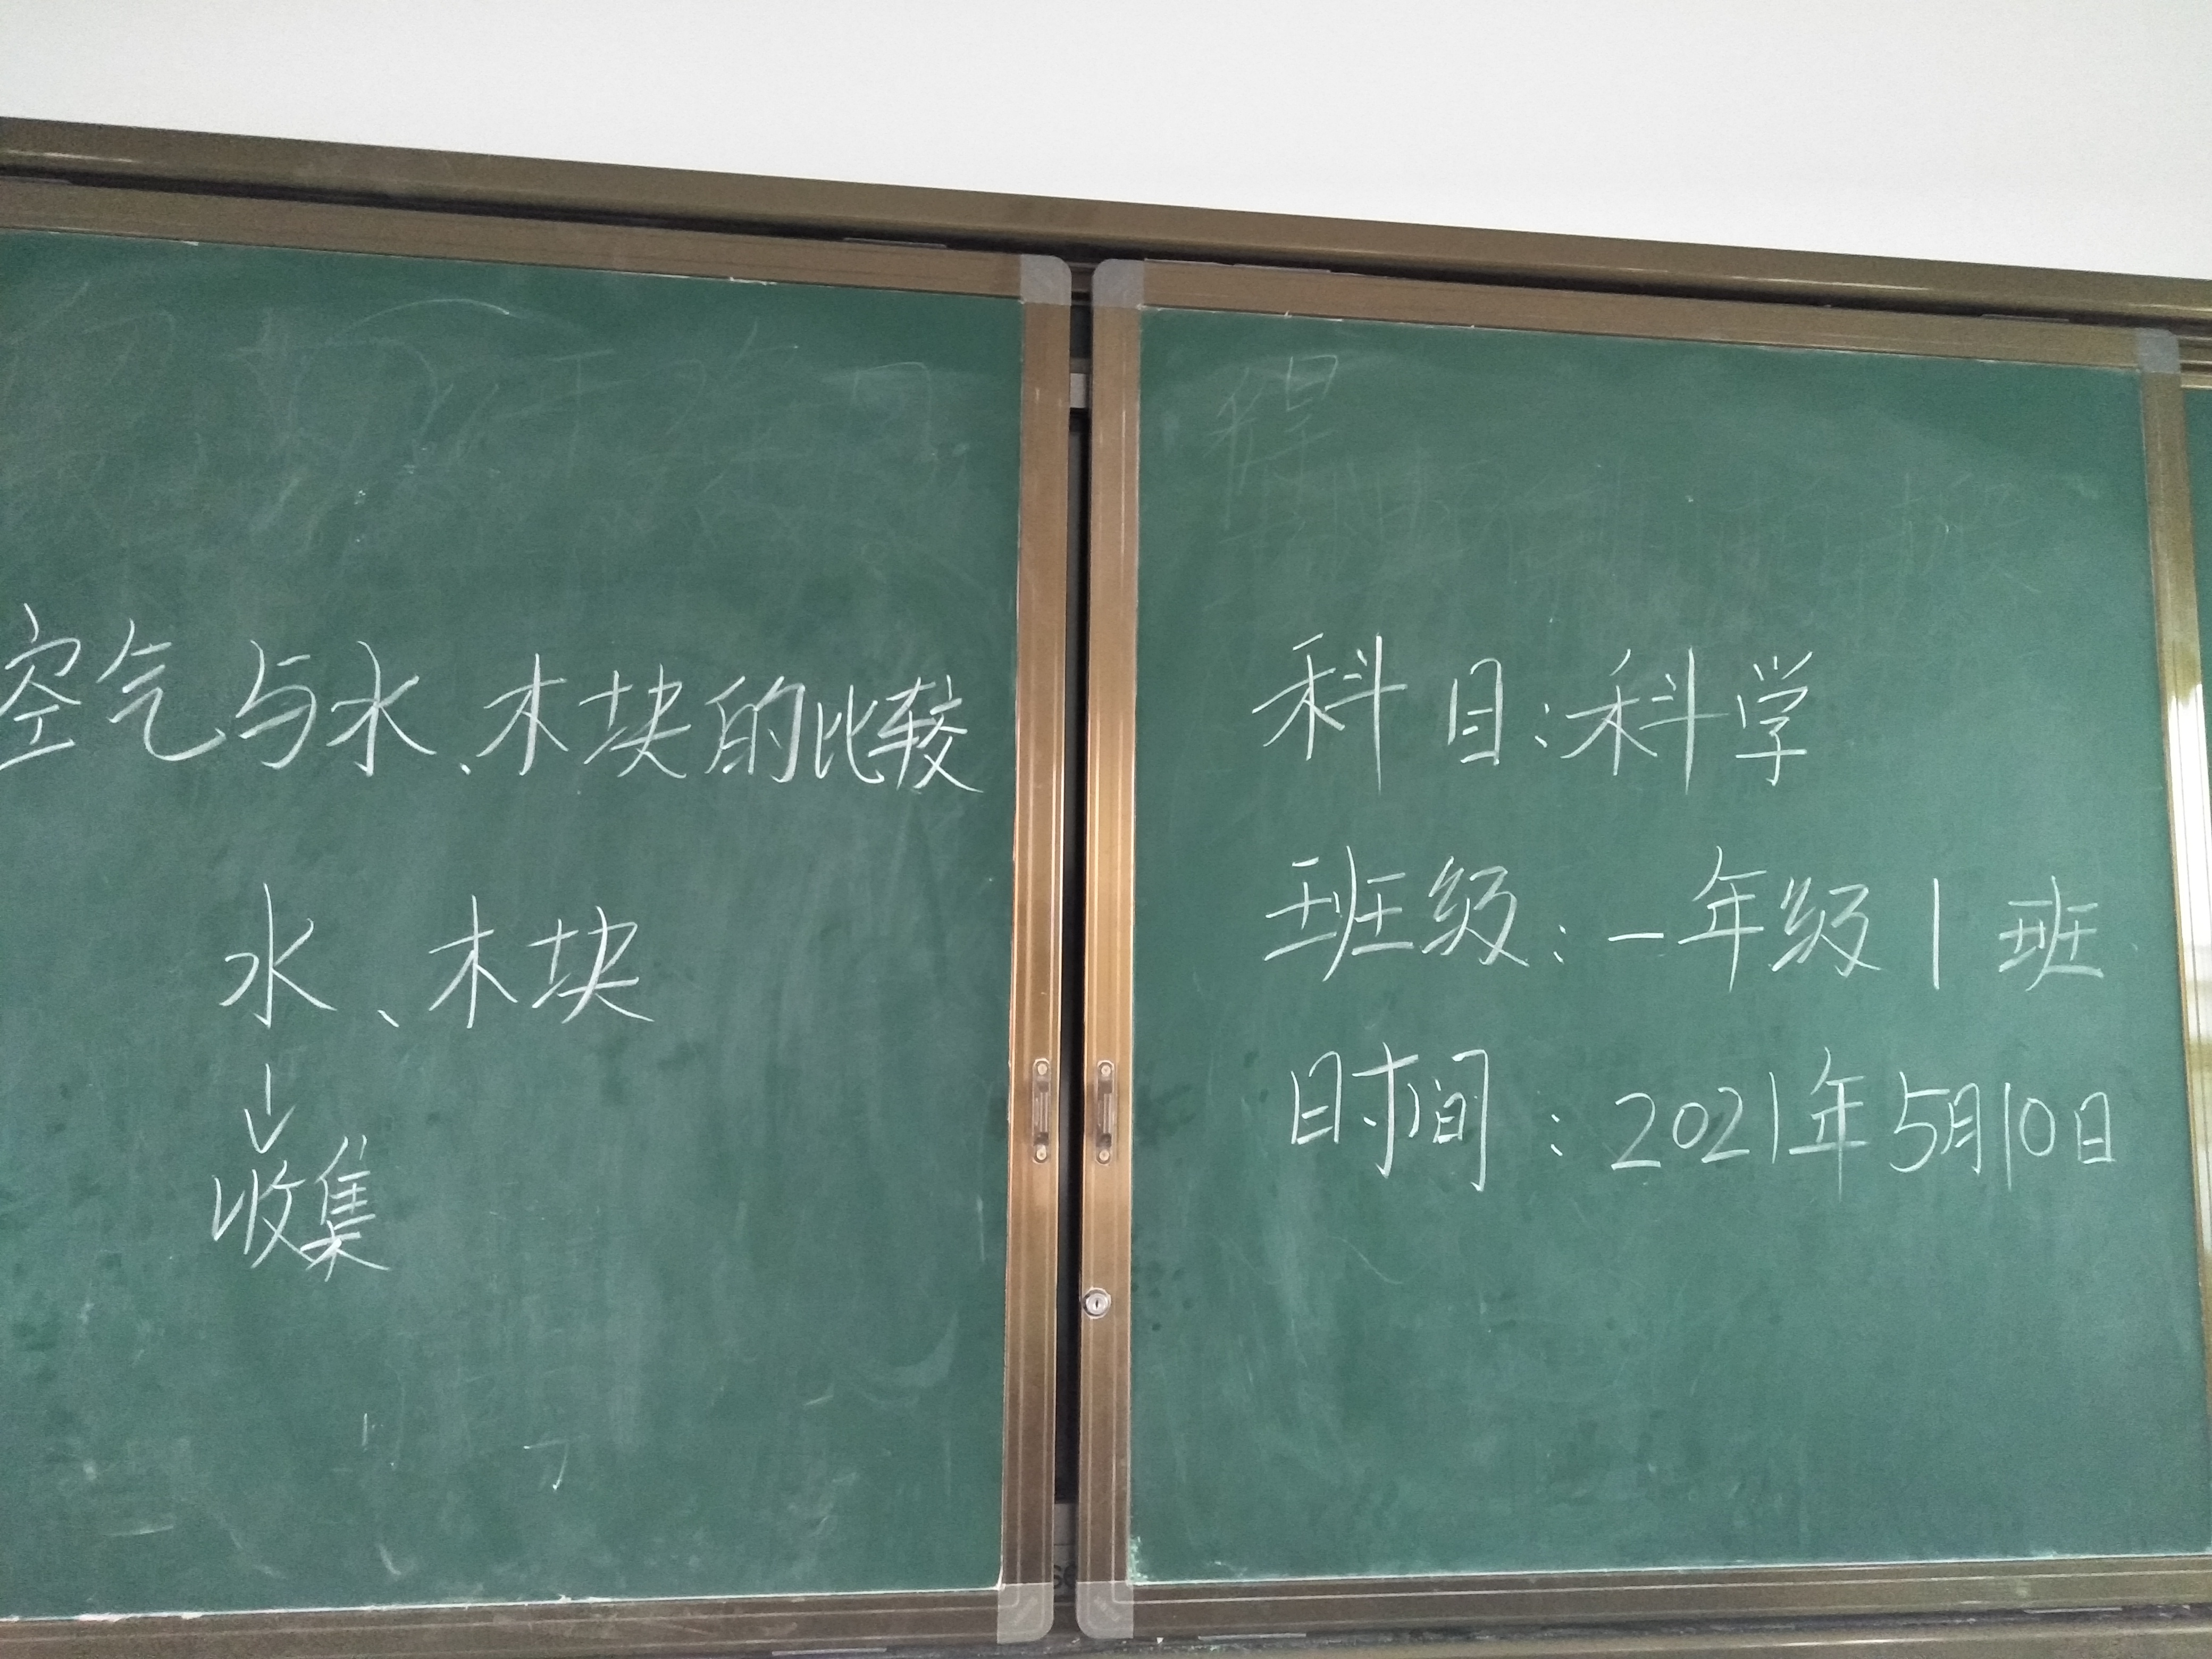 空气与水、木块的比较
水、木块
收集
科目:科学
班级:一年级1班
时间:2021年5月10日